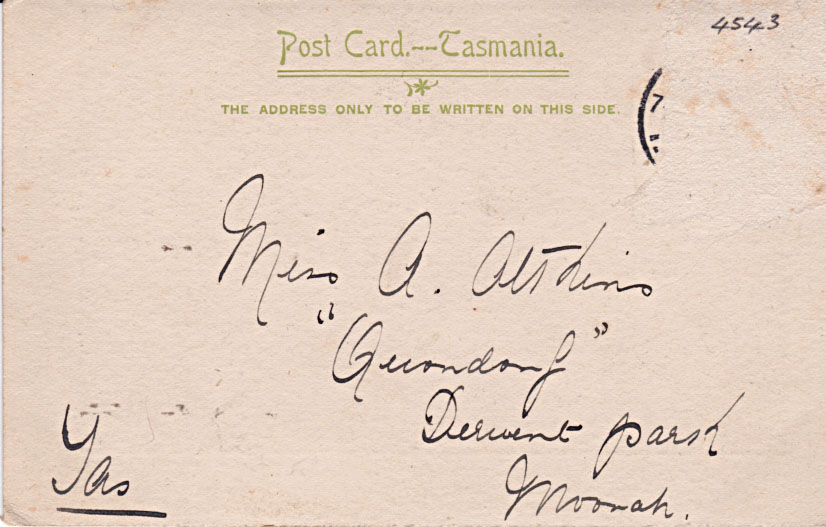 4543
Post Card.--Tasmania.
THE ADDRESS ONLY TO BE WRITTEN ON THIS SIDE.
7
Miss A. Attkins
"Quondong"
Derwent park
Moonah.
Tas